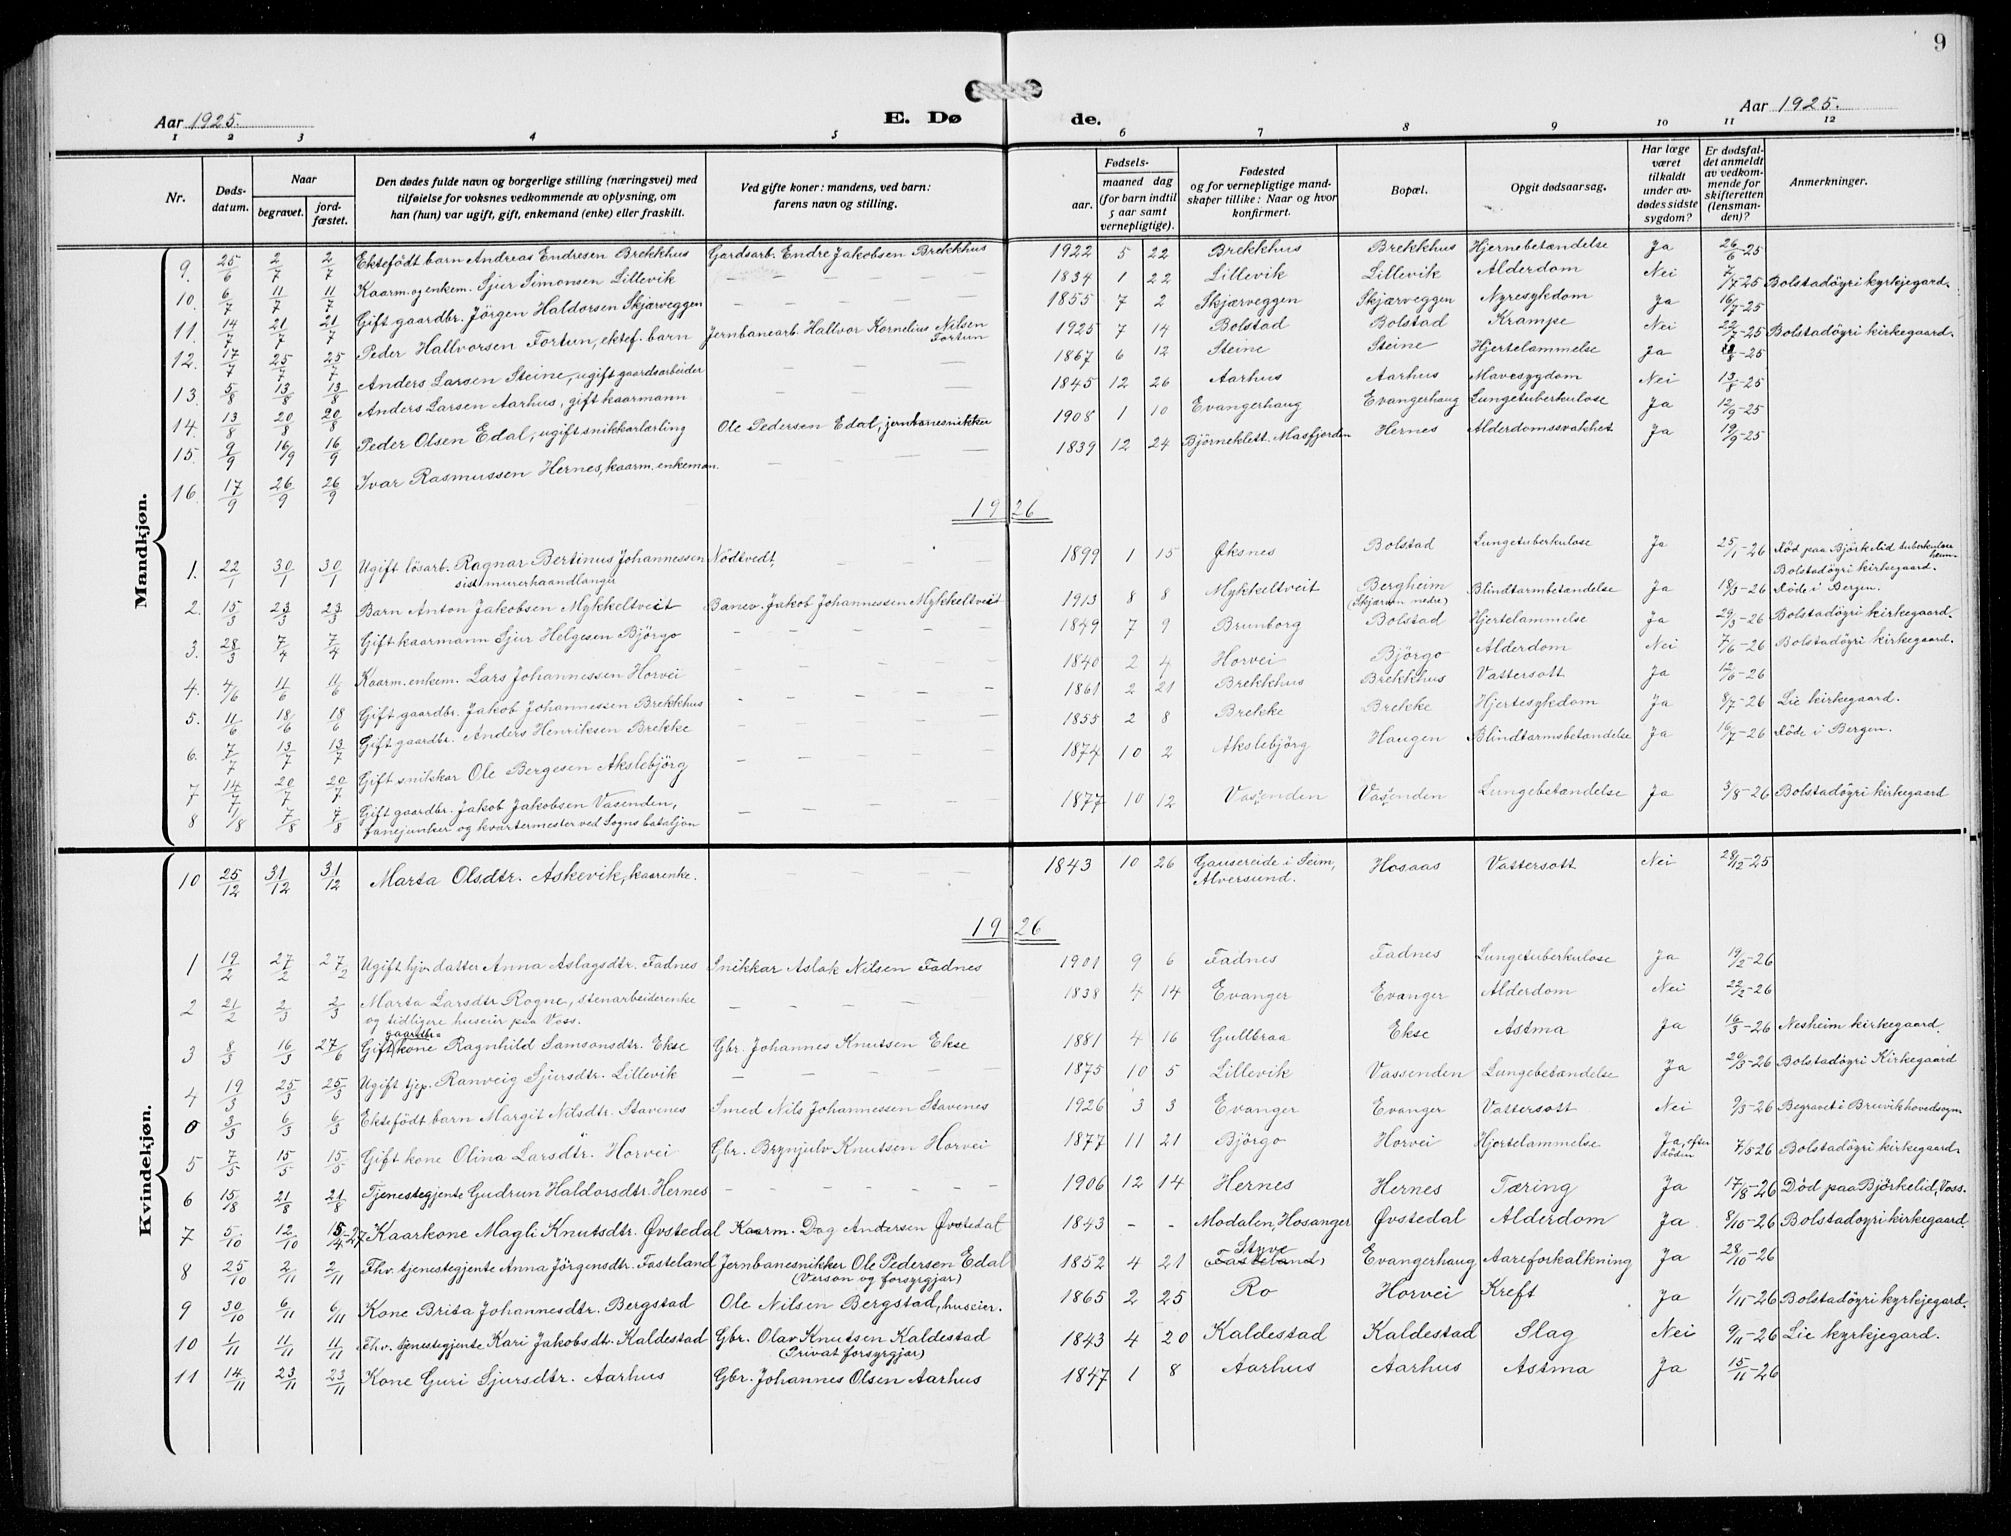 9
Aar 1925.
E. Dø de.
Aar 1925.
1 2 3 4 5 6 7 8 9 10 11 12
Nr.
Døds-datum.
Naar
begravet.
jord-fæstet.
Den dødes fulde navn og borgerlige stilling (næringsvei) med
tilføielse for voksnes vedkommende av oplysning, om
han (hun) var ugift, gift, enkemand (enke) eller fraskilt.
Ved gifte koner: mandens, ved barn:
farens navn og stilling.
Fødsels-
aar. maaned dag
(for barn indtil
5 aar samt
vernepligtige).
Fødested
og for vernepligtige mand-
skaper tillike: Naar og hvor
konfirmert.
Bopæl.
Opgit dødsaarsag.
Har læge
været
tilkaldt
under av-
dødes sidste
sygdom?
Er dødsfal-
det anmeldt
av vedkom-
mende for
skifteretten
(lensman-
den)?
Anmerkninger.
Mandkjøn.
9. 25/6 2/7 2/7 Ektefödt barn Andreas Endresen Brekkhus Gardsarb. Endre Jakobsen Brekkhus 1922 5 22 Brekkhus Brekkhus Hjernebetændelse Ja 26/6-25
10. 6/7 11/7 11/7 Kaarm. og enkem. Sjur Simonsen Lillevik — — — 1834 1 22 Lillevik Lillevik Alderdom Nei 7/7-25 Bolstadöyri kyrkjegard.
11. 14/7 21/7 21/7 Gift gaardbr. Jörgen Haldorsen Skjærveggen — — — 1855 7 2 Skjærveggen Skjærveggen Nyresykdom Ja 16/7-25
12. 17/7 25/7 25/7 Peder Hallvorsen Fortun, ektef. barn Jernbanearb. Hallvor Kornelius Nilsen Fortun 1925 7 14 Bolstad Bolstad Krampe Nei 22/7-25 Bolstadöyri kirkegaard.
13. 5/8 13/8 13/8 Anders Larsen Steine, ugift gaardsarbeider — — — 1867 6 12 Steine Steine Hjertelammelse Ja /8-25
14. 13/8 20/8 20/8 Anders Larsen Aarhus, gift kaarmann — — — 1845 12 26 Aarhus Aarhus Mavesygdom Nei 13/8-25
15. 9/9 16/9 16/9 Peder Olsen Edal, ugift snikkarlærling Ole Pedersen Edal, jernbanesnikker 1908 1 10 Evangerhaug Evangerhaug Lungetuberkulose Ja 12/9-25
16. 17/9 26/9 26/9 Ivar Rasmussen Hernes, kaarm. enkeman. — — — 1839 12 24 Björneklett. Masfjorden Hernes Alderdomssvakhet Ja 19/9-25
1926
1. 22/1 30/1 30/1 Ugift lösarb. Ragnar Bertinus Johannessen Nödtvedt, 1899 1 15 Øksnes Bolstad Lungetuberkulose Ja 25/1-26 Död paa Björkelid tuberkulose heim.
sist murerhaandlanger — — — Bolstadöyri kirkegaard.
2. 15/3 23/3 23/3 Barn Anton Jakobsen Mykkeltveit Banev. Jakob Johannessen Mykkeltveit 1913 8 8 Mykkeltveit Bergheim (Skjærven nedre) Blindtarmbetændelse Ja 18/3-26 Döde i Bergen.
3. 28/3 7/4 7/4 Gift kaarmann Sjur Helgesen Björgo — — — 1849 7 9 Brunborg Bolstad Hjertelammelse Ja 29/3-26 Bolstadöyri kirkegaard.
4. 4/6 11/6 11/6 Kaarm. enkem. Lars Johannessen Horvei — — — 1840 2 4 Horvei Björgo Alderdom Nei 7/6-26 Bolstadöyri kirkegaard.
5. 11/6 18/6 18/6 Gift gaardbr. Jakob Johannessen Brekkhus — — — 1861 2 21 Brekkhus Brekkhus Vattersott Ja 12/6-26
6. 7/7 13/7 13/7 Gift gaardbr. Anders Henriksen Brekke — — — 1855 2 8 Brekke Brekke Hjertesykdom Ja 8/7-26 Lie kirkegaard.
7 14/7 20/7 20/7 Gift snikkar Ole Bergesen Akslebjörg — — — 1874 10 2 Akslebjörg Haugen Blindtarmsbetændelse Ja 16/7-26 Döde i Bergen.
8 1/8 7/8 7/8 Gift gaardbr. Jakob Jakobsen Vasenden, — — — 1877 10 12 Vassenden Vassenden Lungebetændelse Ja 3/8-26 Bolstadöyri kirkegaard
fanejunker og kvartermester ved Sogns bataljon
Kvindekjøn.
10 25/12 31/12 31/12 Marta Olsdtr. Askevik, kaarenke. — — — 1843 10 26 Gausereide i Seim, Alversund. Hosaas Vattersott Nei 28/12-25
1926
1 19/2 27/2 27/2 Ugift hjv. datter Anna Aslagsdtr. Fadnes Snikkar Aslak Nilsen Fadnes 1901 9 6 Fadnes Fadnes Lungetuberkulose Ja 19/2-26
2 21/2 2/3 2/3 Marta Larsdtr Rogne, stenarbeiderenke — — — 1838 4 14 Evanger Evanger Alderdom Nei 22/2-26
og tidligere huseier paa Voss.
3 8/3 16/3 27/6 Gift gaardbr.kone Ragnhild Samsonsdtr. Ekse Gbr. Johannes Knutsen Ekse 1881 4 16 Gullbraa Ekse Astma Ja 16/3-26 Nesheim kirkegaard.
4 19/3 25/3 25/3 Ugift tjen. Ranveig Sjursdtr. Lillevik — — — 1875 10 5 Lillevik Vassenden Lungebetændelse Ja 20/3-26 Bolstadöyri Kirkegaard
0 3/3 6/3 6/3 Ektefödt barn Margit Nilsdtr. Stavenes Smed Nils Johannessen Stavenes 1926 3 3 Evanger Evanger Vattersott Nei 9/3-26 Begravet i Bruvik hovedsogn
5 7/5 15/5 15/5 Gift kone Olina Larsdtr. Horvei Gbr. Brynjulv Knutsen Horvei 1877 11 21 Björgo Horvei Hjertelammelse Ja, efter döden 7/5-26 Bolstadöyri kirkegaard.
6 15/8 21/8 21/8 Tjenestegjente Gudrun Haldorsdtr. Hernes — — — 1906 12 14 Hernes Hernes Tæring Ja 17/8-26 Död paa Björkelid, Voss.
7 5/10 12/10 15/4-27 Kaarkone Magli Knutsdtr. Øvstedal Kaarm. Dag Andersen Øvstedal 1843 - - Modalen, Hosanger Øvstedal Alderdom Ja 8/10-26 Bolstadoyri kirkegaard.
8 25/10 2/11 2/11 Fhv. tjenestegjente Anna Jörgensdtr. Fasteland Jernbanesnikker Ole Pedersen Edal 1852 4 21 Styve (Fasteland) Evangerhaug Aareforkalkning Ja 28/10-26
(Verson og forsyrgjar)
9 30/10 6/11 6/11 Kone Brita Johannesdtr. Bergstad Ole Nilsen Bergstad, huseier. 1865 2 25 Ro Horvei Kreft Ja 1/11-26 Bolstadöyri kyrkjegard.
10 1/11 11/11 11/11 Fhv. tjenestegjente Kari Jakobsdtr. Kaldestad Gbr. Olav Knutsen Kaldestad 1843 4 20 Kaldestad Kaldestad Slag Nei 9/11-26 Lie kyrkjegard.
(Privat forsyrgjar)
11 14/11 23/11 23/11 Kone Guri Sjursdtr. Aarhus Gbr. Johannes Olsen Aarhus 1847 1 8 Aarhus Aarhus Astma Ja 15/11-26